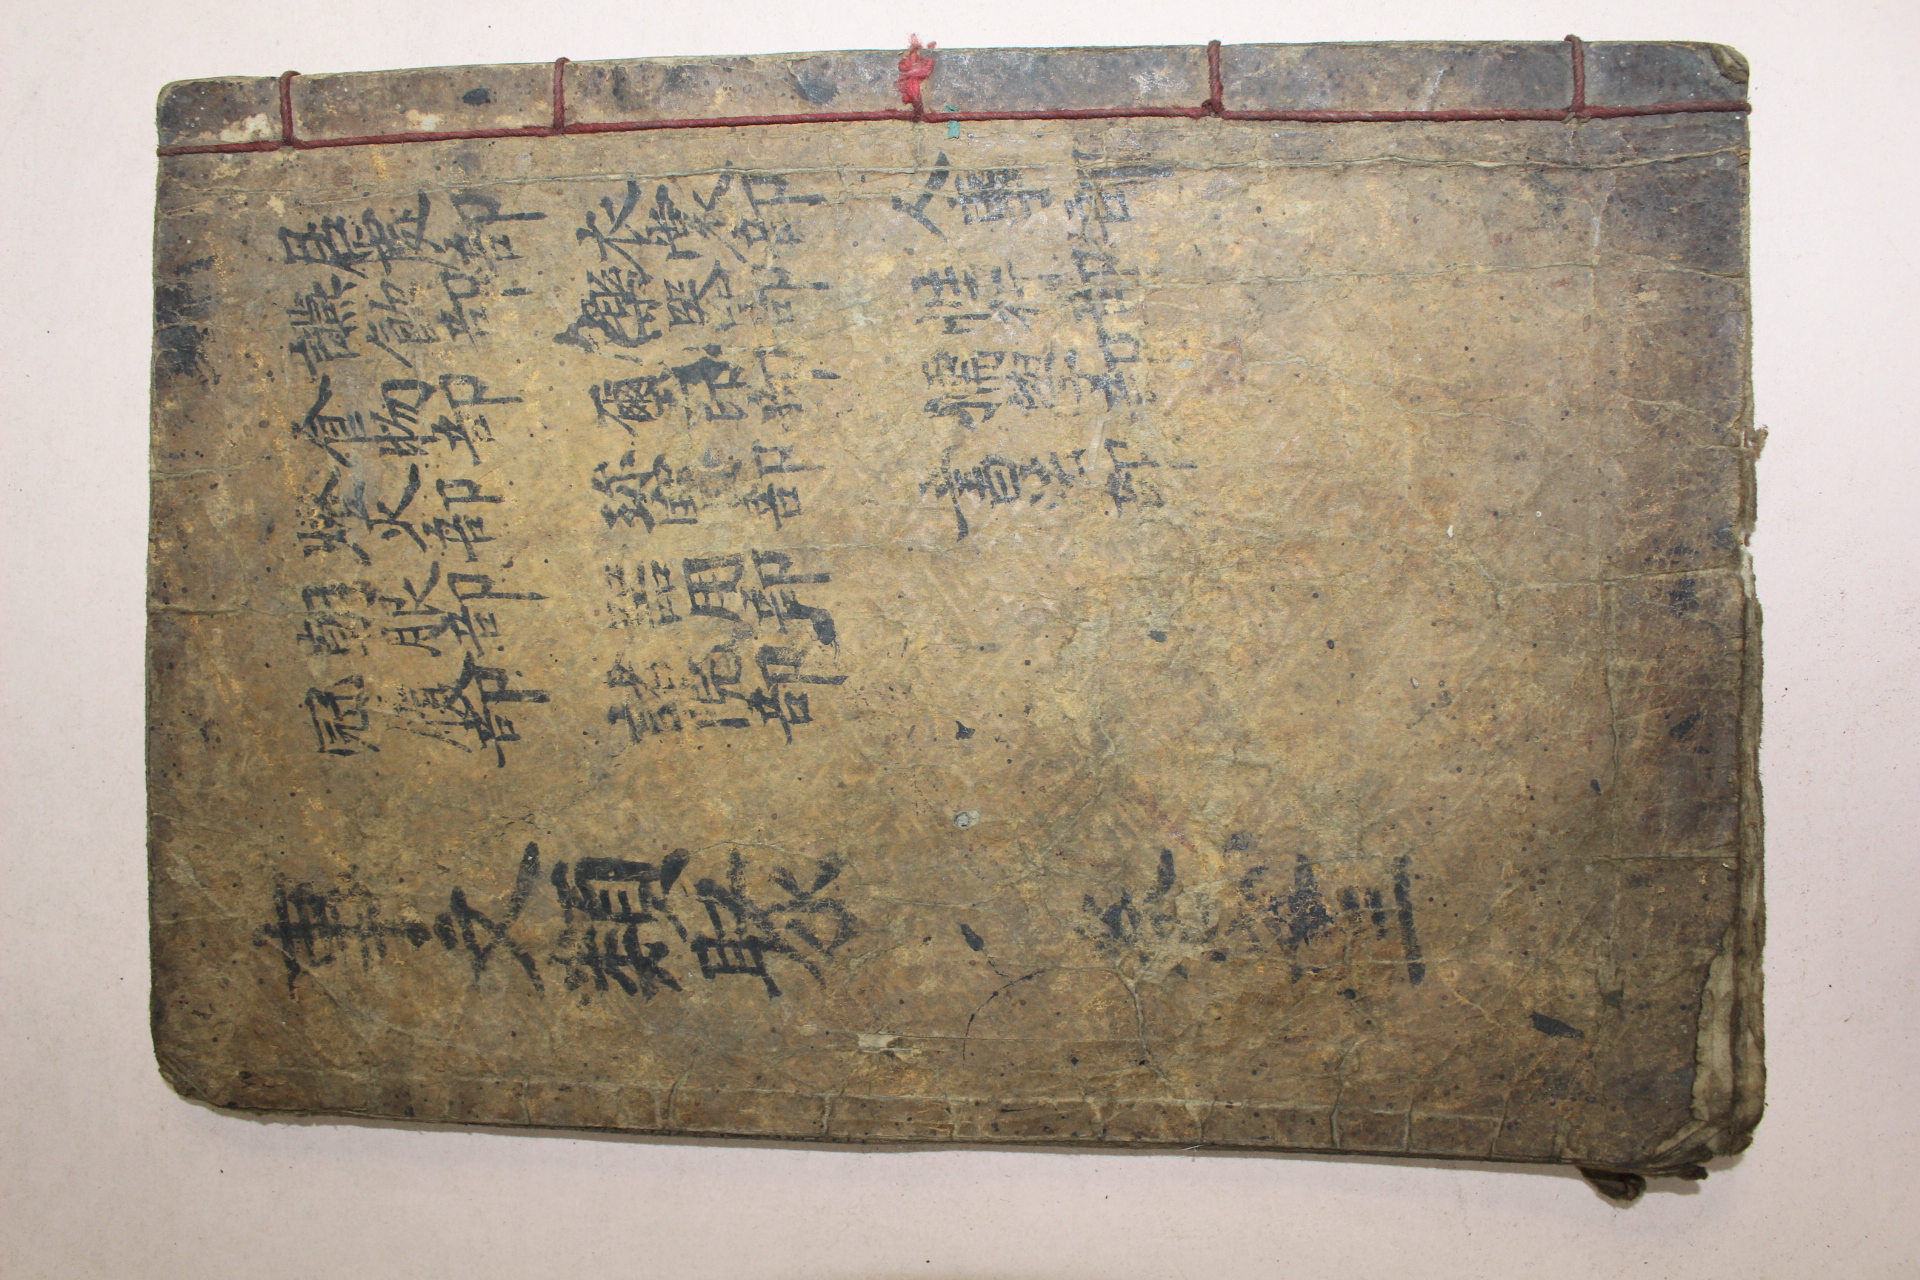 居處部 衣裳部 人事部
讌飮部 樂器部 性行部
食物部 璽印部 儒學部
燈火部 珎寶部 書法部
朝服部 器用部
冠履部 諸院部
事文類聚 卷 三